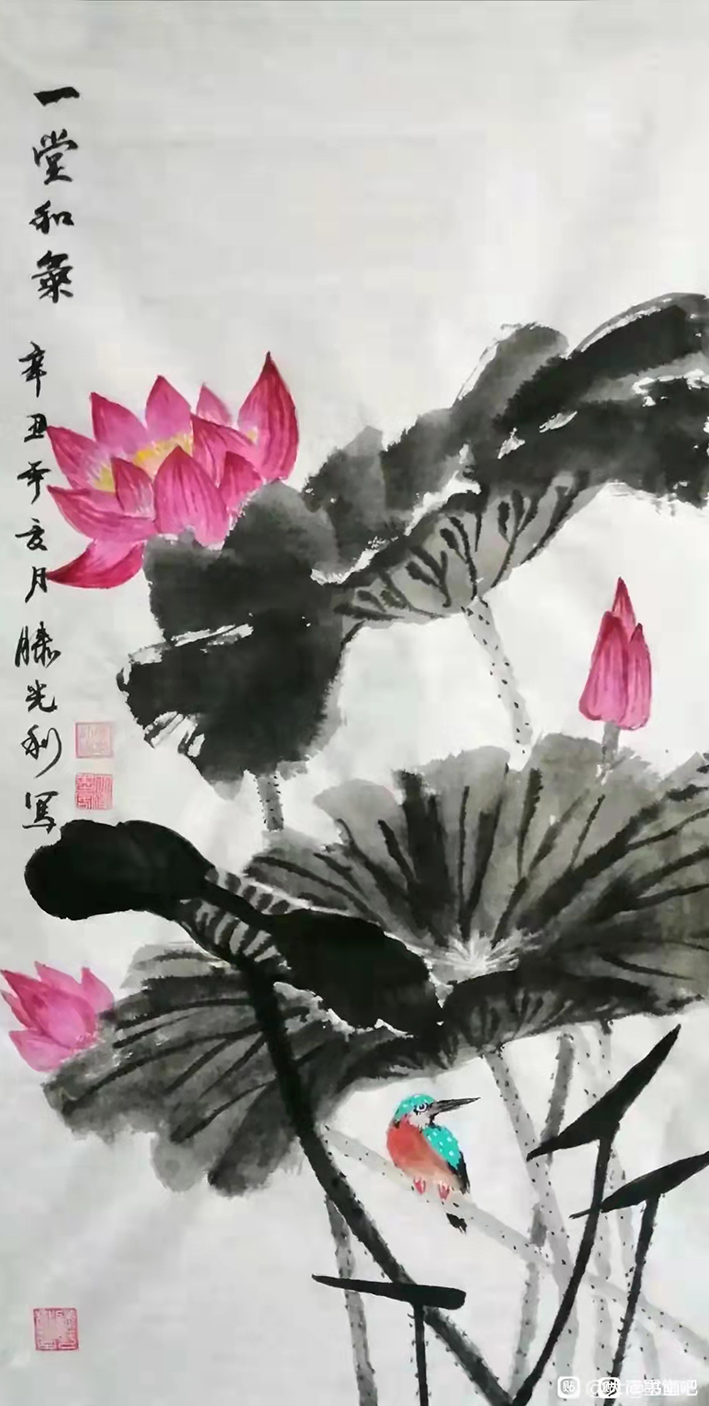 一堂和氣
辛丑年亥月滕光利寫